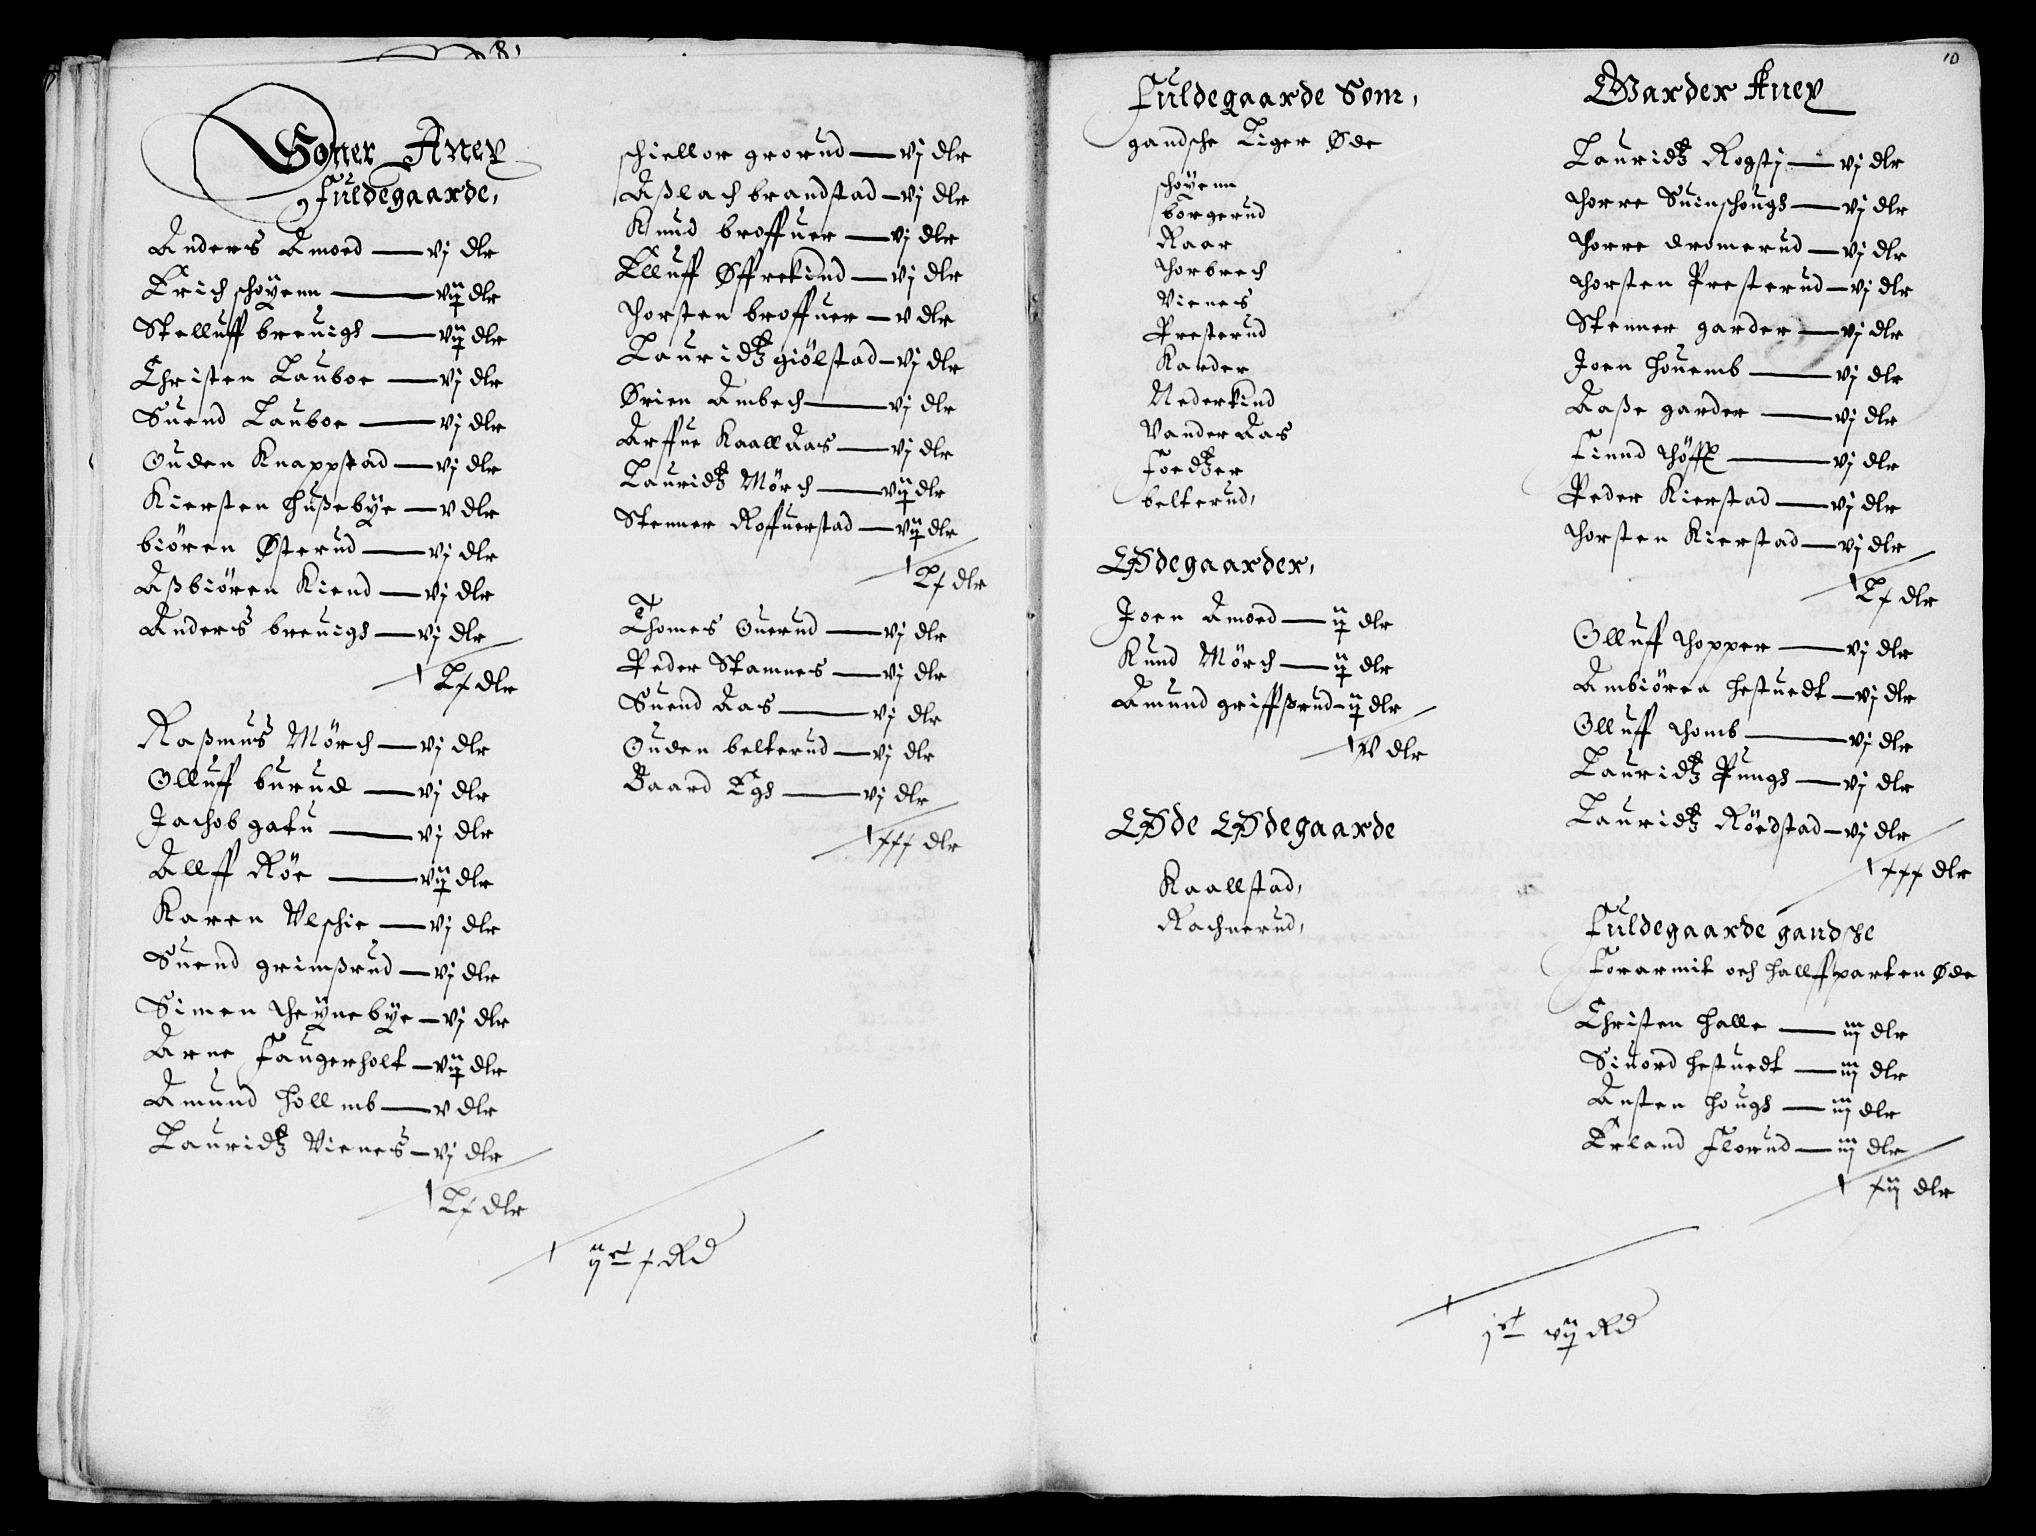 Soner Aney
Fuldegaarde,
Anders Amoed — vj dlr
Erich schoÿenn — vij dlr
Stelluff breuigh — vij dlr
Christen Lauboe — vj dlr
Suend Lauboe — vj dlr
Ouden Knappstad — vj dlr
Kiersten hußebÿe — v dlr
biören Østerud — vj dlr
Aßbiören Kiend — vj dlr
Anders breuigh — vj dlr
Lx dlr
Raßmus Mörch — vj dlr
Olluff burud — vj dlr
Jachob gatu — vj dlr
Allff Röe — vij dlr
Karen Vlschie — vj dlr
Suend grimßrud — vj dlr
Simen theÿnebÿe — vj dlr
Arne Faugerholt — vij dlr
Amund hollmb — v dlr
Lauridtz Vienes — vj dlr
Lx dlr
schiellor grorud — vj dlr
Aßlach brandstad — vj dlr
Knud broffuer — vj dlr
Elluff Øffrekind — vj dlr
Thorsten broffuer — v dlr
Lauridtz giölstad — vj dlr
Örien Ambech — vj dlr
Arffue KaallAas — vj dlr
Lauridtz Mörch — vij dlr
Stenner Roffuerstad — vij dlr
Lx dlr
Thomes Ouerud — vj dlr
Peder Stamnes — vj dlr
Suend Aas — vj dlr
Ouden belterud — vj dlr
Baard Egh — vj dlr
xxx dlr
ij ct x Rd
10
Fuldegaarde Som,
gandsche Liger Øde
schoÿenn
borgerud
Raar
thorbrech
Vienes
Presterud
Karder
Nederkind
VanderAas
Foedtzer
belterud,
Ødegaarder,
Joen Amoed — ij dlr
Kund Mörch — ij dlr
Amund griffßrud — ij dlr
V dlr
Øde Ødegaarde
Kaallstad,
Rachnerud,
Warder Aney
Lauridtz Rogstj — vj dlr
thorre Suinshough — vj dlr
thorre dromerud — vj dlr
thorsten Presterud — vj dlr
Stenner garder — vj dlr
Joen houemb — vj dlr
Aaße garder — vj dlr
Finnd thöfft — vj dlr
Peder Kierstad — vj dlr
thorsten Kierstad — vj dlr
Lx dlr
Olluff thopper — vj dlr
Ambiören hestuedt — vj dlr
Olluff thomb — vj dlr
Lauridtz Pungh — vj dlr
Lauridtz Röedstad — vj dlr
xxx dlr
Fuldegaarde gandske
Forarmit och hallfparten Øde
Christen halle — iij dlr
Siuord hestuedt — iij dlr
Austen hough — iij dlr
Erland Florud — iij dlr
xij dlr
j ct vij Rd